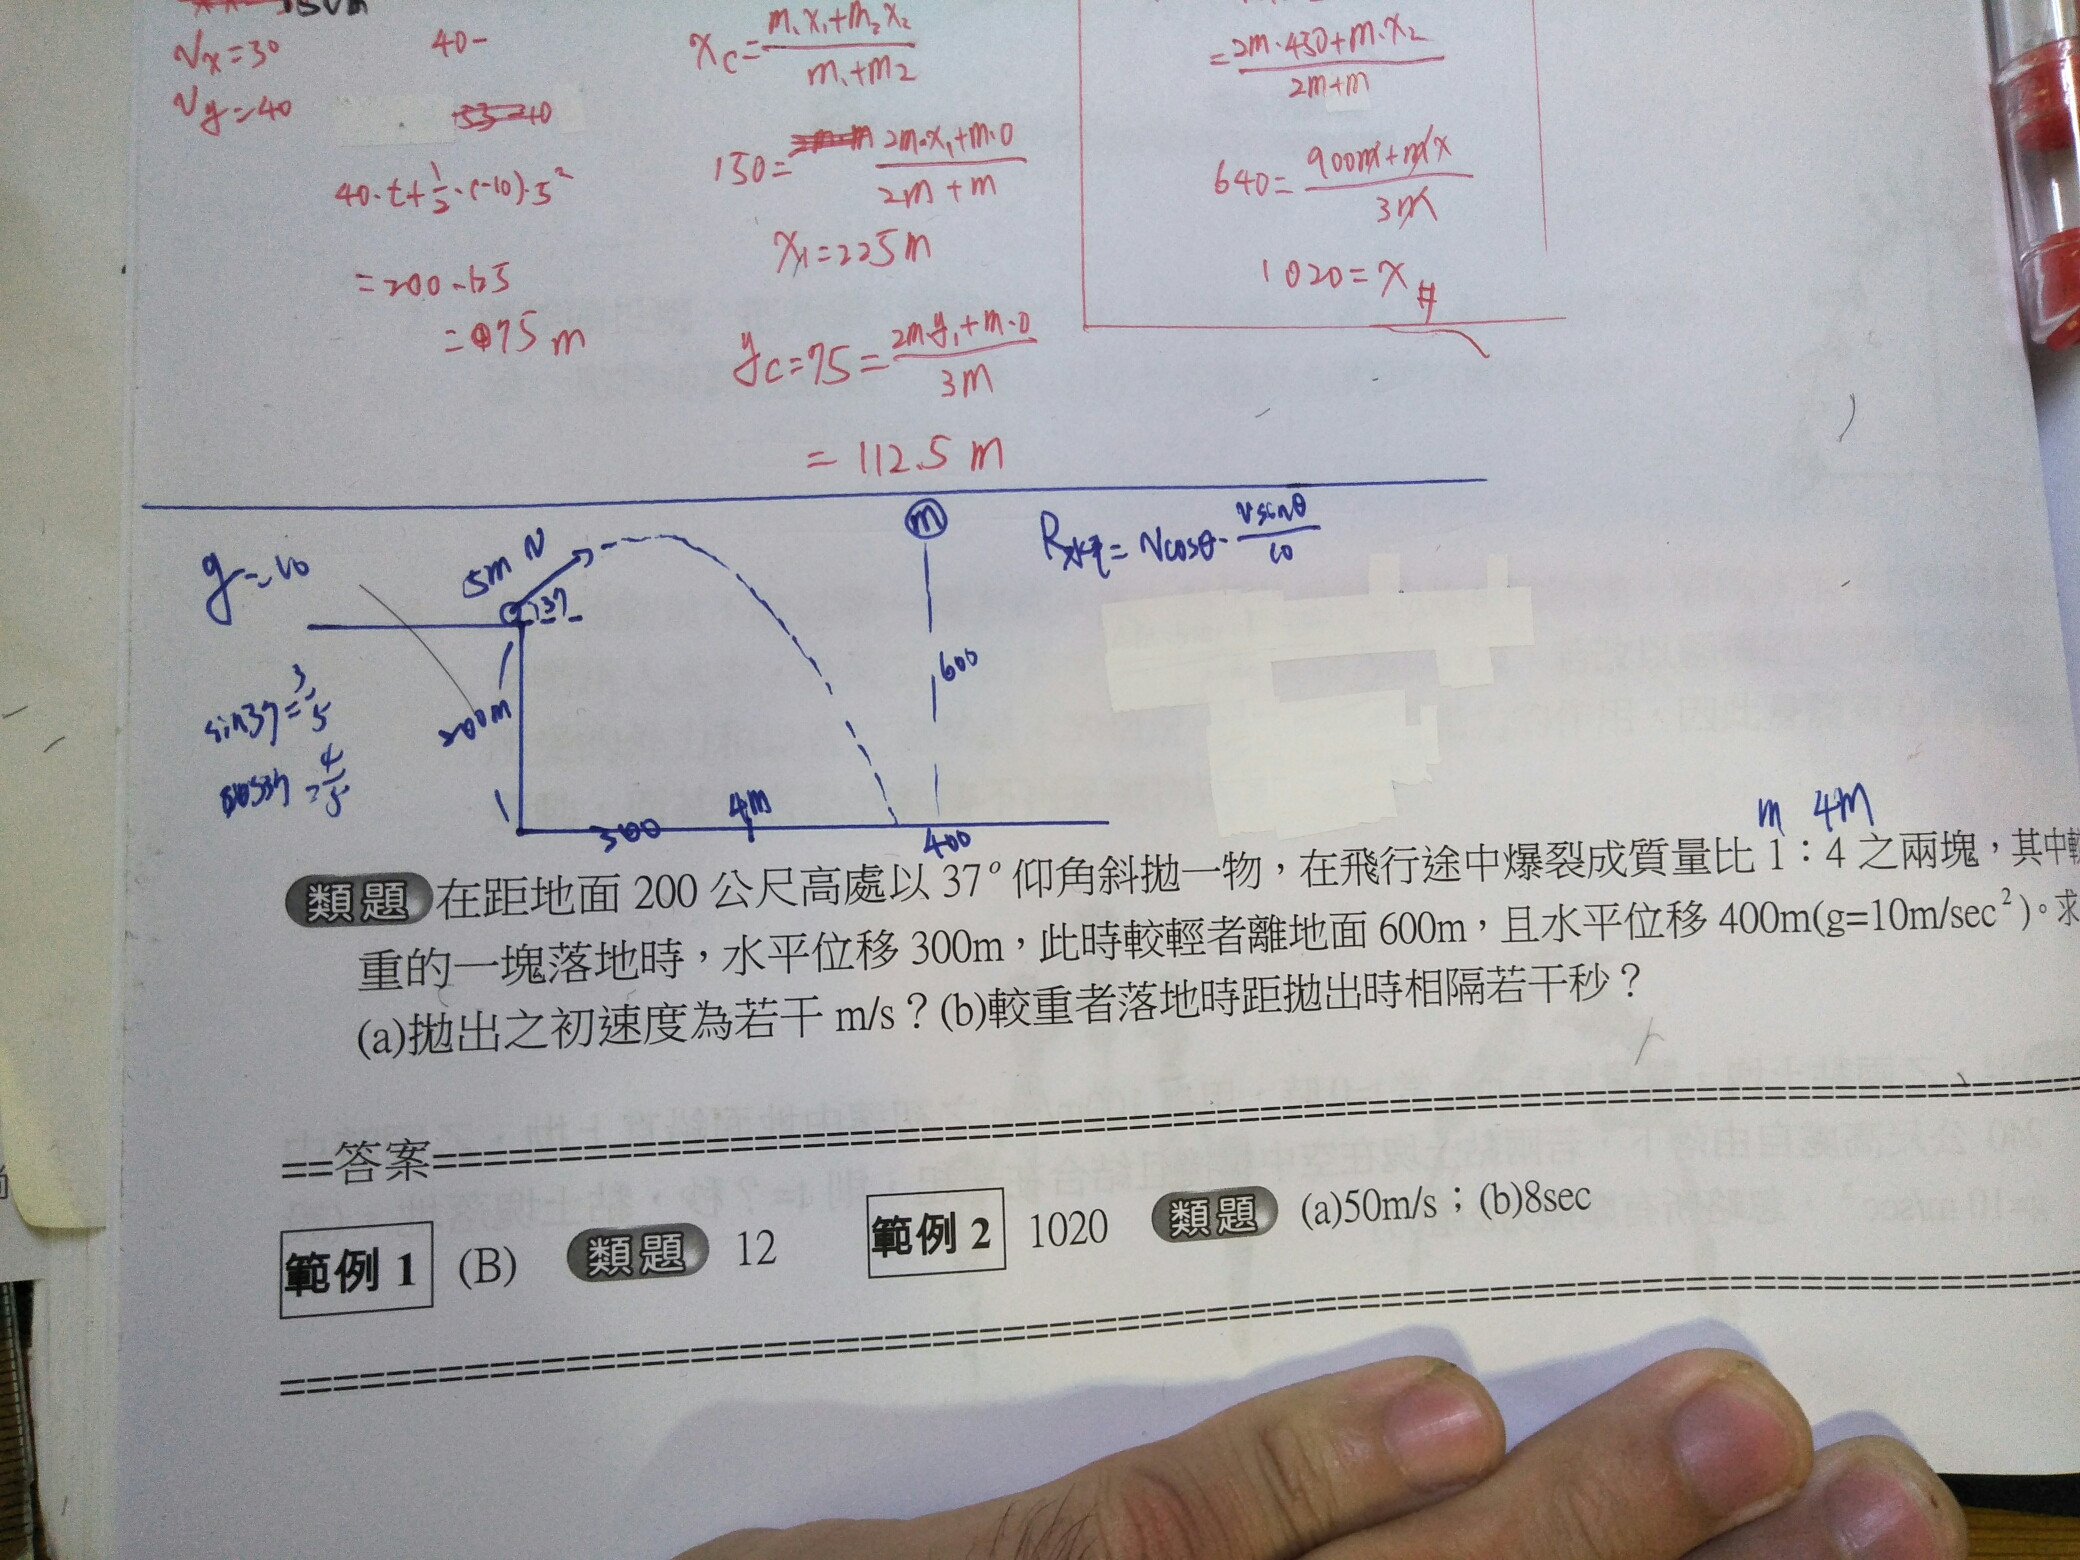 150m
Vx=30
Vy=40
40-
40·t+1/2·(-10)·5²
=200-125
=75m
xc=(m₁x₁+m₂x₂)/(m₁+m₂)
150=(2m·x₁+m·0)/(2m+m)
x₁=225m
yc=75=(2m·y₁+m·0)/3m
=112.5m
=(2m·450+m·x₂)/(2m+m)
640=(900m+mx)/3m
1020=x #
g=10
5m V
37
200m
sin37=3/5
cos37=4/5
300
4m
400
m
600
R水平=Vcosθ·Vsinθ/10
m 4M
類題 在距地面 200 公尺高處以 37° 仰角斜拋一物，在飛行途中爆裂成質量比 1：4 之兩塊，其中較
重的一塊落地時，水平位移 300m，此時較輕者離地面 600m，且水平位移 400m(g=10m/sec²)。求
(a)拋出之初速度為若干 m/s？(b)較重者落地時距拋出時相隔若干秒？
==答案==
範例 1 (B) 類題 12 範例 2 1020 類題 (a)50m/s；(b)8sec